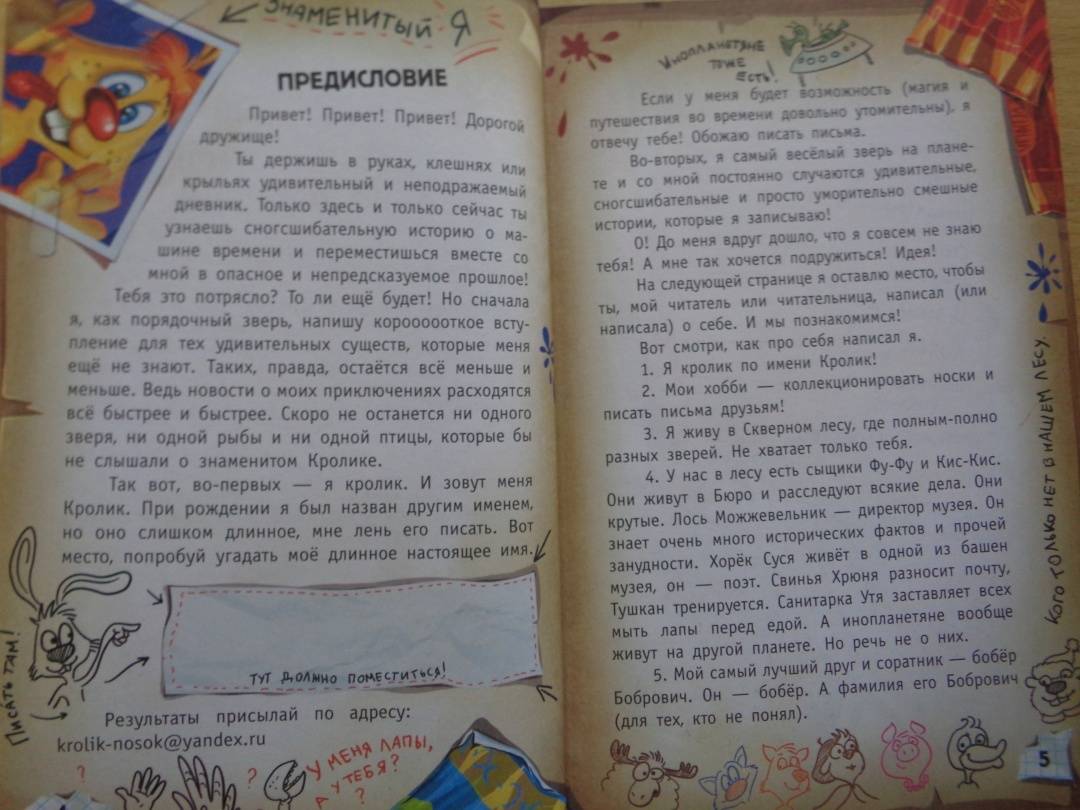 ЗНАМЕНИТЫЙ Я
ПРЕДИСЛОВИЕ
Привет! Привет! Привет! Дорогой
дружище!
Ты держишь в руках, клешнях или
крыльях удивительный и неподражаемый
дневник. Только здесь и только сейчас ты
узнаешь сногсшибательную историю о ма-
шине времени и переместишься вместе со
мной в опасное и непредсказуемое прошлое!
Тебя это потрясло? То ли ещё будет! Но сначала
я, как порядочный зверь, напишу короооооткое всту-
пление для тех удивительных существ, которые меня
ещё не знают. Таких, правда, остаётся всё меньше и
меньше. Ведь новости о моих приключениях расходятся
всё быстрее и быстрее. Скоро не останется ни одного
зверя, ни одной рыбы и ни одной птицы, которые бы
не слышали о знаменитом Кролике.
Так вот, во-первых — я кролик. И зовут меня
Кролик. При рождении я был назван другим именем,
но оно слишком длинное, мне лень его писать. Вот
место, попробуй угадать моё длинное настоящее имя.
ПИСАТЬ ТАМ!
ТУТ ДОЛЖНО ПОМЕСТИТЬСЯ!
Результаты присылай по адресу:
krolik-nosok@yandex.ru
? ? У МЕНЯ ЛАПЫ,
А У ТЕБЯ?
?
ИНОПЛАНЕТЯНЕ
ТОЖЕ
ЕСТЬ!
Если у меня будет возможность (магия и
путешествия во времени довольно утомительны), я
отвечу тебе! Обожаю писать письма.
Во-вторых, я самый весёлый зверь на плане-
те и со мной постоянно случаются удивительные,
сногсшибательные и просто уморительно смешные
истории, которые я записываю!
О! До меня вдруг дошло, что я совсем не знаю
тебя! А мне так хочется подружиться! Идея!
На следующей странице я оставлю место, чтобы
ты, мой читатель или читательница, написал (или
написала) о себе. И мы познакомимся!
Вот смотри, как про себя написал я.
1. Я кролик по имени Кролик!
2. Мои хобби — коллекционировать носки и
писать письма друзьям!
3. Я живу в Скверном лесу, где полным-полно
разных зверей. Не хватает только тебя.
4. У нас в лесу есть сыщики Фу-Фу и Кис-Кис.
Они живут в Бюро и расследуют всякие дела. Они
крутые. Лось Можжевельник — директор музея. Он
знает очень много исторических фактов и прочей
занудности. Хорёк Суся живёт в одной из башен
музея, он — поэт. Свинья Хрюня разносит почту,
Тушкан тренируется. Санитарка Утя заставляет всех
мыть лапы перед едой. А инопланетяне вообще
живут на другой планете. Но речь не о них.
5. Мой самый лучший друг и соратник — бобёр
Бобрович. Он — бобёр. А фамилия его Бобрович
(для тех, кто не понял).
КОГО ТОЛЬКО НЕТ В НАШЕМ ЛЕСУ.
5